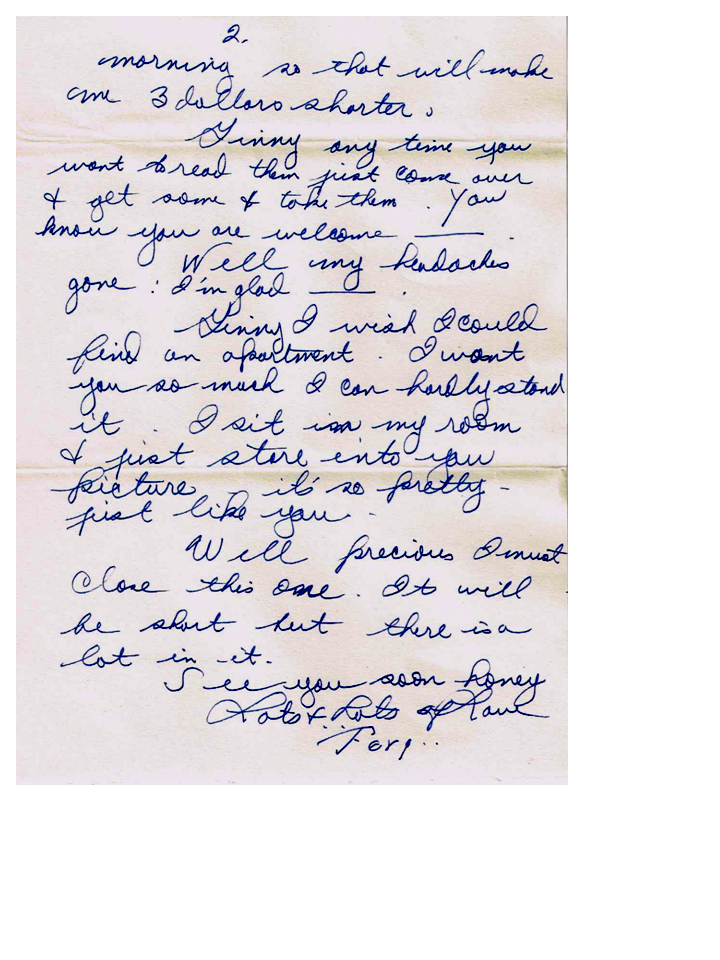 2.
morning so that will make
me 3 dollars shorter.
Ginny any time you
want to read them just come over
& get some & take them. You
know you are welcome ——.
Well my headaches
gone: I'm glad ——.
Ginny I wish I could
find an apartment. I want
you so much I can hardly stand
it. I sit in my room
& just stare into you
picture - it's so pretty -
just like you.
Well precious I must
close this one. It will
be short but there is a
lot in it.
See you soon honey
Lots & Lots of Love